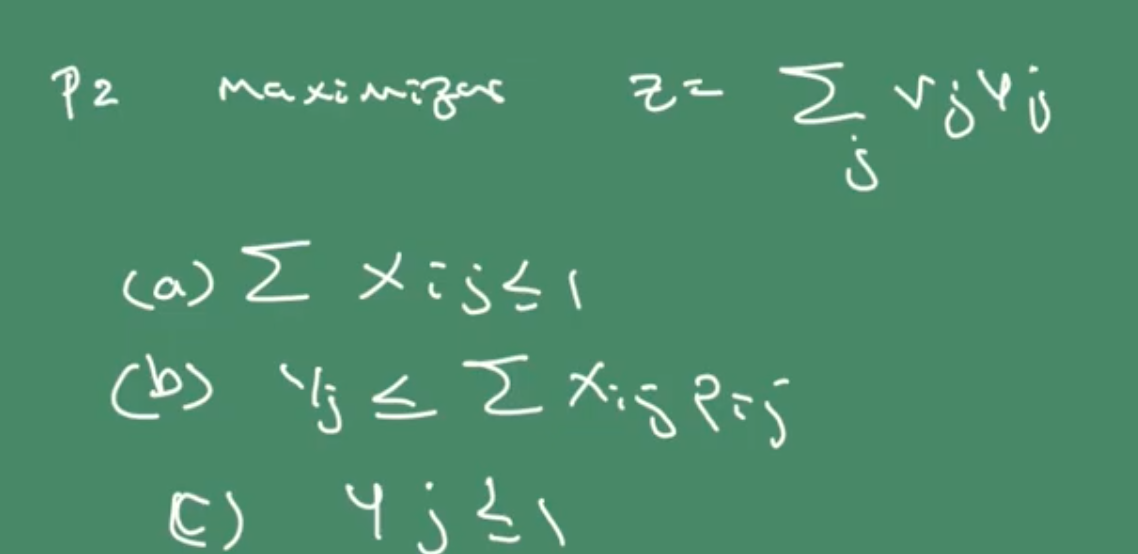 P2 Maximizar z = ∑_j v_j y_j
(a) ∑ x_ij ≤ 1
(b) y_j ≤ ∑ x_ij p_ij
(c) y_j ≤ 1